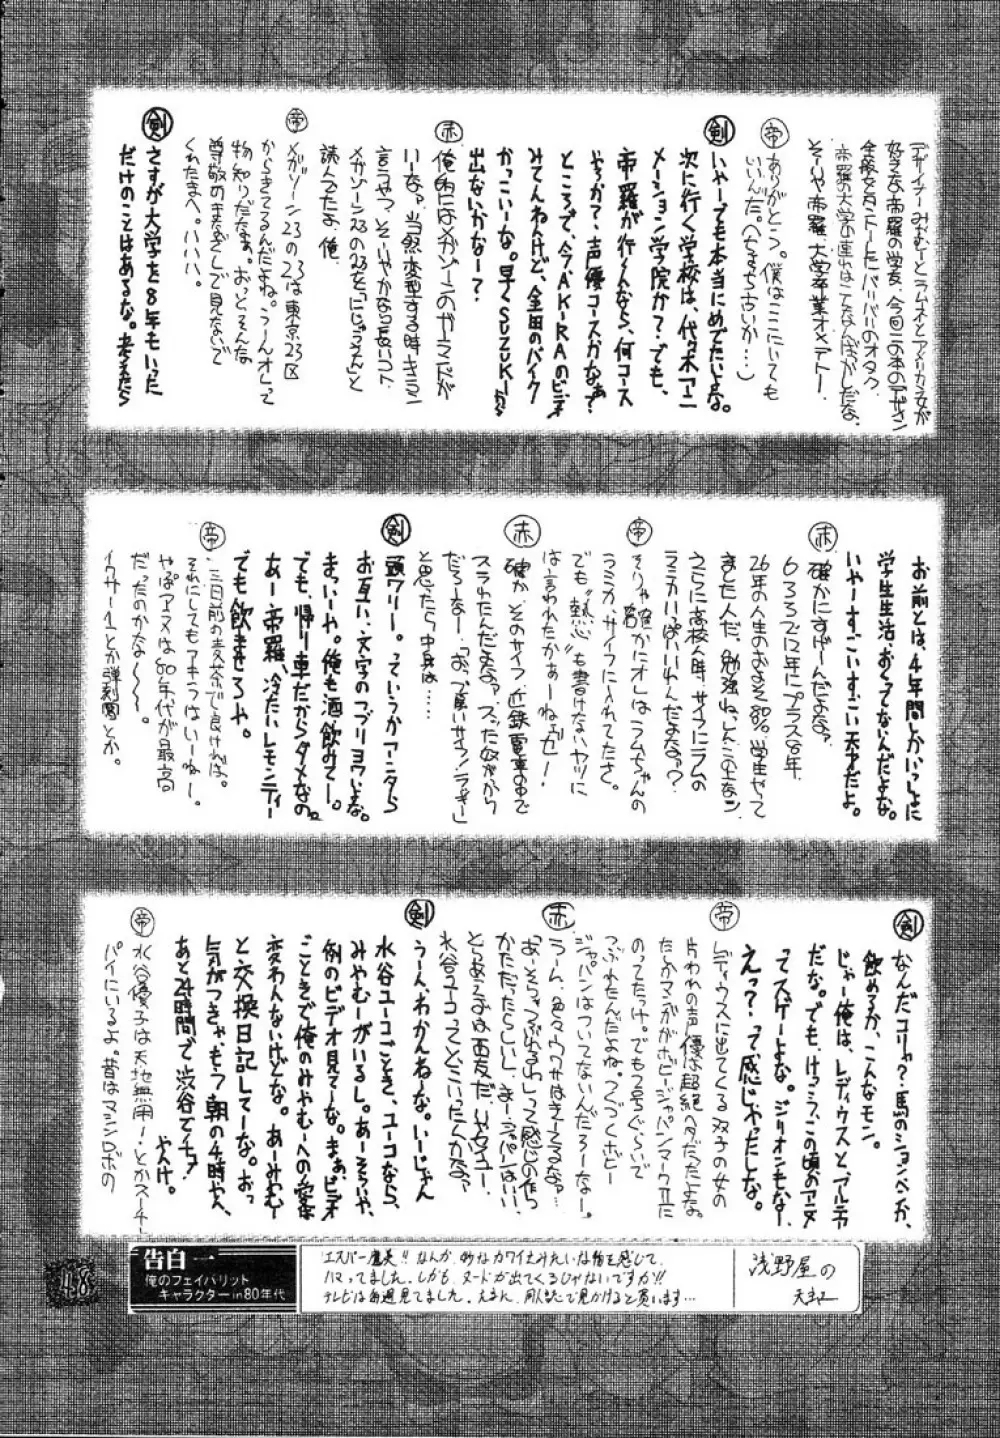 デザイナーみおむーとラムネイとアメリカ女が
好きな帝羅の学友、今回この本のデザイン
全般女友トートしたバリバリのオタク。
帝羅の大学の連れはこんなんばかしだな。
そーりゃ帝羅、大学卒業オメデトー。
帝
ありがとう。僕はここにいても
いいんだ。(ちまち古いか…)
剣
いやーでも本当にめでたいよな。
次に行く学校は、代々木アニ
メーション学院か？でも、
帝羅が行くんなら、何コース
やろか？、声優コースかなぁ？
ところで、今AKIRAのビデオ
みてんねんけど、金田のバイク
かっこいーな。早くSUZUKIから
出ないかなー？
赤
俺的にはメガゾーンのガーランドが
いーなぁ。当然変型する時キーン
言うやつ。そーいやかなり長いコト
メガゾーン23の23を「にじゅうさん」と
読んでたよ、俺。
帝
メガゾーン23の23は東京23区
からきてるんだよね。うーんオレって
物知りだなぁ。おっとそんな
尊敬のまなざしで見ないで
くれたまへ。ハハハ。
剣
さすが大学を8年もいった
だけのことはあるな。考えたら
お前とは、4年間しかいっしょに
学生生活、おくってないんだよな。
いやーすごいすごい天才だよ。
赤
確かにすげーんだよな？
6 3 3で12年にプラス8年
26年の人生のおよそ80%学生やって
ました人だ。勉強ね、しんこのナン
さらに高校ん時、サイフにラムの
ラミカいっぱいいれてんだよな？
帝
そりゃ確かにオレはラムちゃんの
ラミカ、サイフに入れてたさ。
でも"熱心"も書けないヤツに
は言われたかぁーねぇぜ！
赤
確か、そのサイフ近鉄電車の中で
スラれたんだよなァ。スッた奴がから
だろーなー、「おっ厚いサイフ！ラッキー」
と思てたら中身は……
剣
頭ワリー。っていうかアニタら
お互い、文字のっブリヨワいよな。
まっいーや。俺も酒飲みてー。
でも、帰り車だからダメなの。
あー帝羅、冷たいレモンティー
でも飲ませろや。
帝
三日前の麦茶で良ければ。
それにしてもアキラはいーねー。
やっぱアニメは80年代が最高
だったのかな～～～。
イクサー1とか弾劾凰とか。
剣
なんだコリャ？馬のションベンか、
飲めるか、こんなモン。
じゃー俺は、レディウスと、アルテ
だな。でも、けっこう、この頃のアニメ
ってスゲーよな。ジリオンもなー
えっ？？って感じやったしな。
帝
レディウスに出てくる双子の女の
片われの声優は超絶ヘタだったよな。
たしかマンガがホビージャパンマークIIに
のってたっけ。でも3号ぐらいで
つぶれたんだよね。つくづくホビー
ジャパンはついてないんだろーなー。
赤
うーん、色々ウワサはきいてるなァ…
「あーそりゃつぶれるわ」って感じの作り
かただったらしいし、まーJャパンはいい、
とりあえずは西友だ、いやちゃう
水谷ユーコってどこいったんかなァ？
剣
うーん、わかんねーな。いーじゃん
水谷ユーコごとき、ユーコなら、
みやむーがいるし。あーそういや、
例のビデオ見てーな。まぁ、ビデオ
ごときで俺のみやむーへの愛は
変わんないけどな。あーみやむー
と交換日記してーな。おっ
気がつきゃもう朝の4時やん、
あと24時間で渋谷でチュ！
やんけ。
帝
水谷優子は天地無用！とかスーチー
パイにいるよ。昔はマシンロボの
48
告白一
俺のフェイバリット
キャラクター in 80年代
エスパー魔美!! なんか、妙なカワイさみたいな物を感じて
ハマってました。しかも、ヌードが出てくるじゃないですか!!
テレビは毎週見てました。
浅野屋の